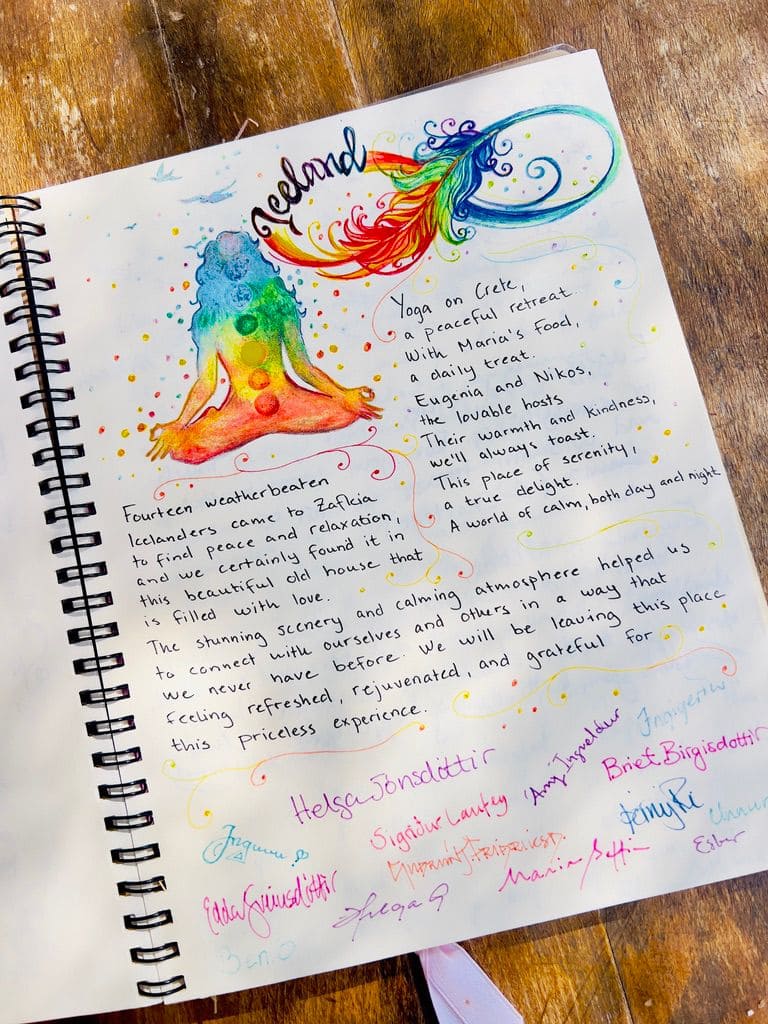 Iceland
Yoga on Crete,
a peaceful retreat.
With Maria's Food,
a daily treat.
Eugenia and Nikos,
the lovable hosts
Their warmth and kindness,
we'll always toast.
This place of serenity,
a true delight.
A world of calm, both day and night
Fourteen weatherbeaten
Icelanders came to Zafkia
to find peace and relaxation,
and we certainly found it in
this beautiful old house that
is filled with love.
The stunning scenery and calming atmosphere helped us
to connect with ourselves and others in a way that
we never have before. We will be leaving this place
feeling refreshed, rejuvenated, and grateful for
this priceless experience.
Helga Jónsdóttir
Sigríður Laufey
Briet Birgisdóttir
Edda
Helga G
Maria